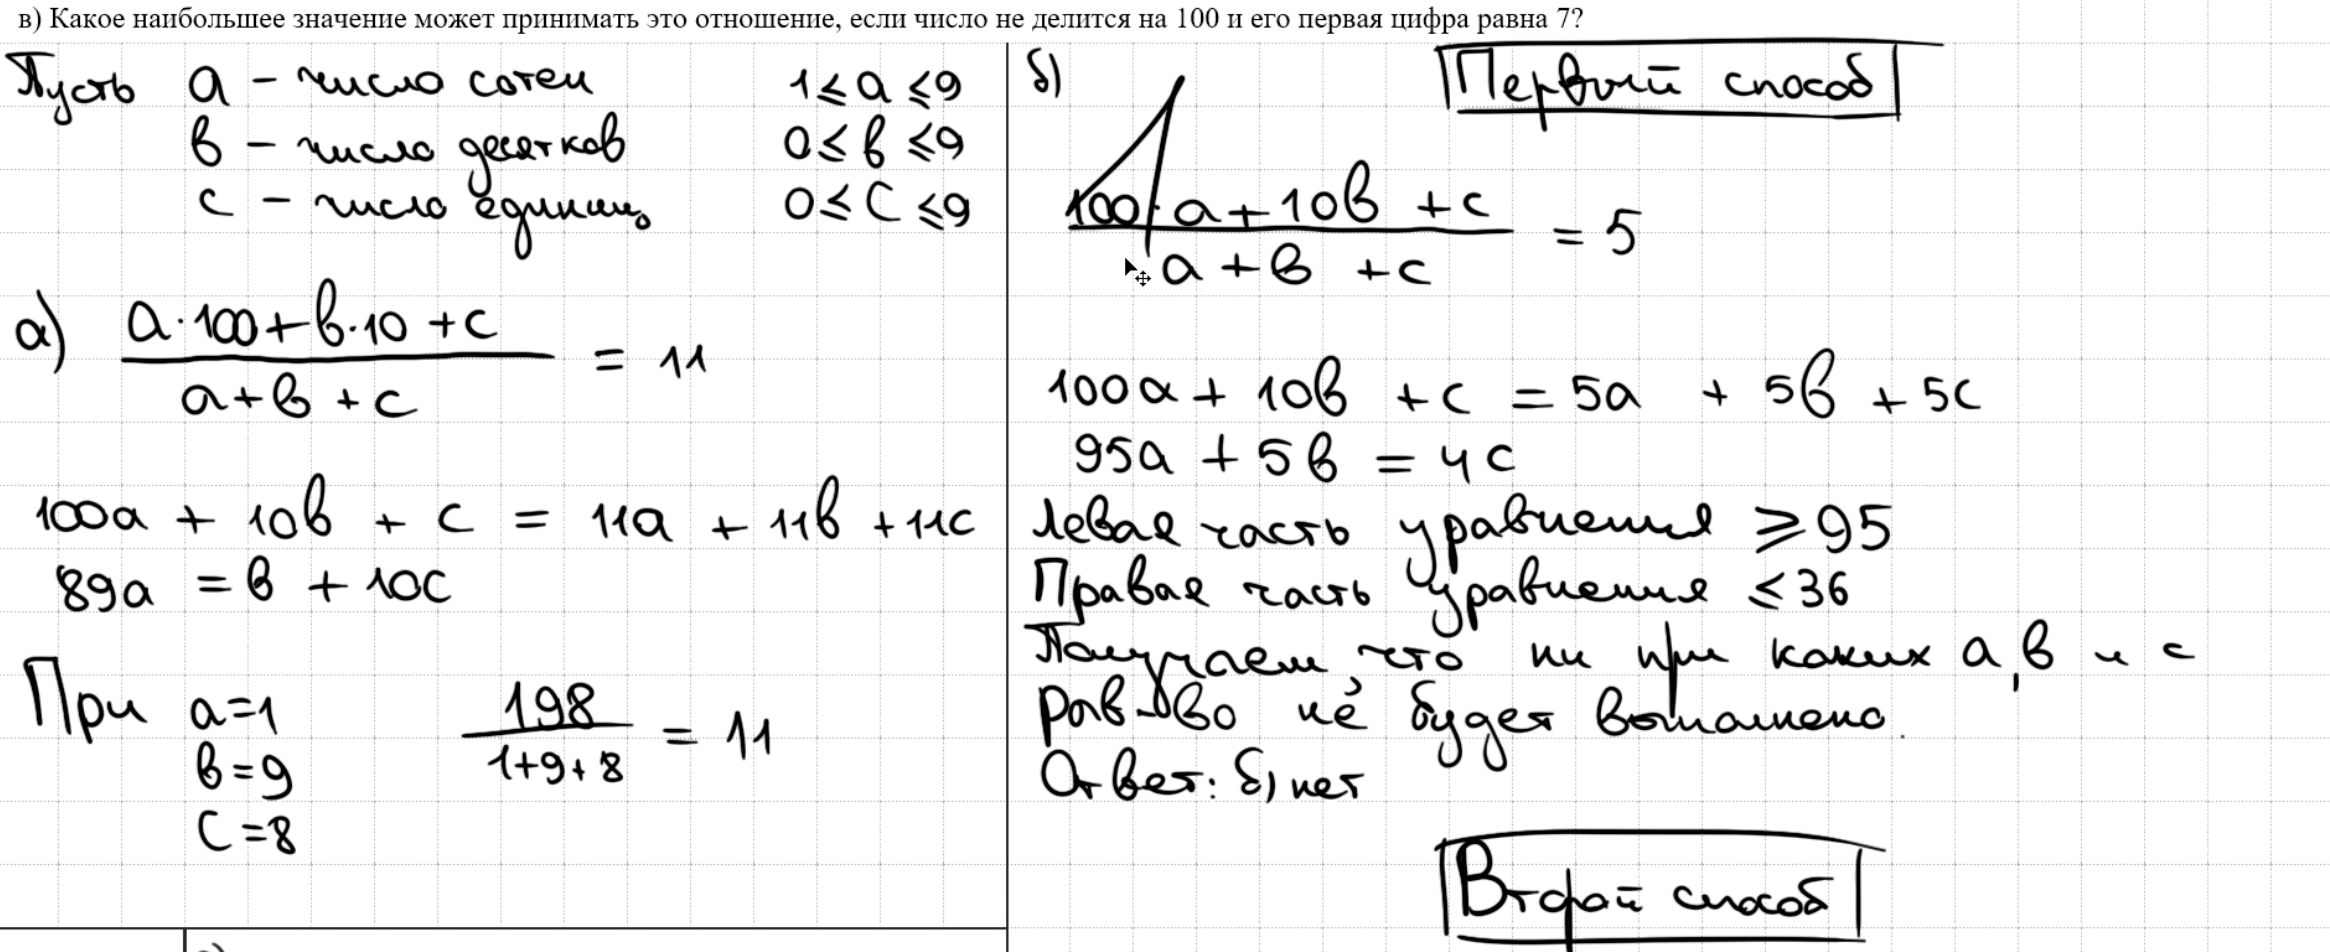 в) Какое наибольшее значение может принимать это отношение, если число не делится на 100 и его первая цифра равна 7?
Пусть a – число сотен 1 ≤ a ≤ 9
в – число десятков 0 ≤ в ≤ 9
c – число единиц 0 ≤ c ≤ 9
а) (a·100+в·10+c)/(a+в+c) = 11
100a + 10в + c = 11a + 11в + 11c
89a = в + 10c
При a=1 198/(1+9+8) = 11
в=9
c=8
б) Первый способ
(100·a+10в+c)/(a+в+c) = 5
100a + 10в + c = 5a + 5в + 5c
95a + 5в = 4c
Левая часть уравнения ≥ 95
Правая часть уравнения ≤ 36
Получаем, что ни при каких a, в и c
рав-во не будет выполнено.
Ответ: б) нет
Второй способ